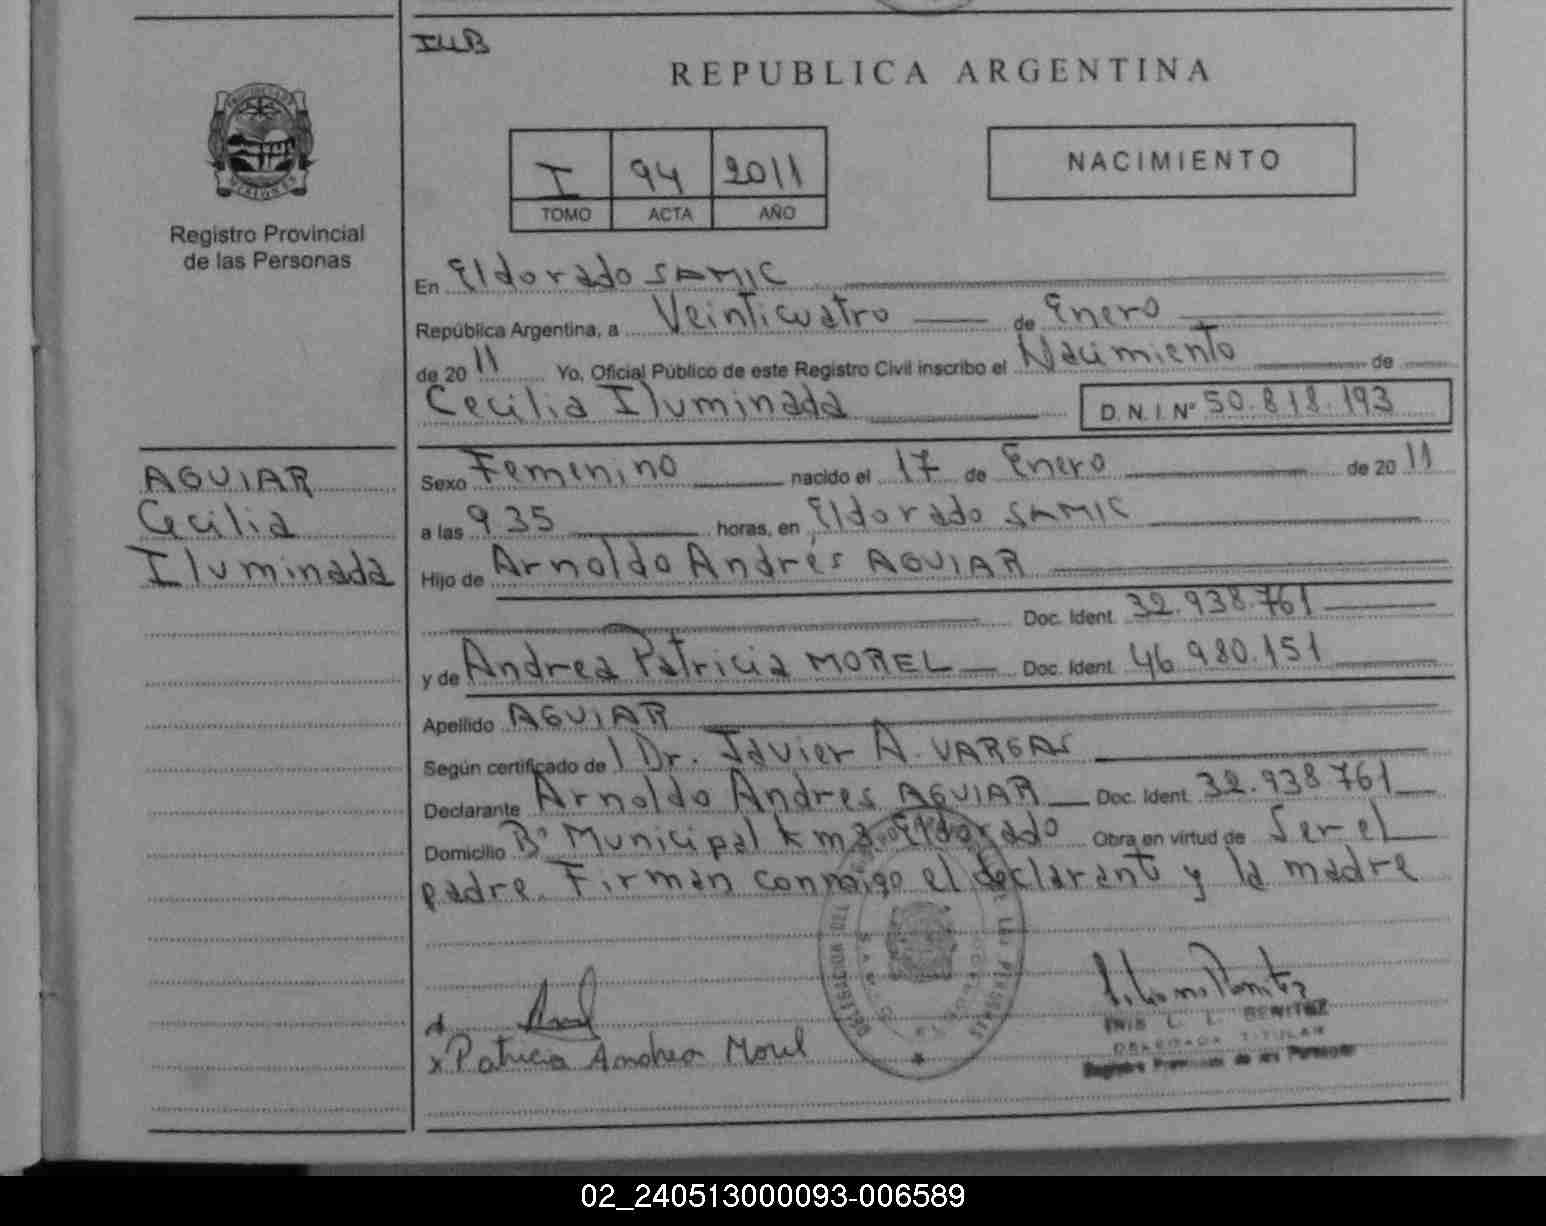 IUB
REPUBLICA ARGENTINA
I 94 2011
TOMO ACTA AÑO
NACIMIENTO
Registro Provincial
de las Personas
En Eldorado SAMIC
República Argentina, a Veinticuatro de Enero
de 2011 Yo, Oficial Público de este Registro Civil inscribo el Nacimiento de
Cecilia Iluminada D.N.I. Nº 50.818.193
AGUIAR
Cecilia
Iluminada
Sexo Femenino nacido el 17 de Enero de 2011
a las 9 35 horas, en Eldorado SAMIC
Hijo de Arnoldo Andrés AGUIAR
Doc. Ident. 32.938.761
y de Andrea Patricia MOREL Doc. Ident. 46.980.151
Apellido AGUIAR
Según certificado de l Dr. Javier A. VARGAS
Declarante Arnoldo Andres AGUIAR Doc. Ident. 32.938.761
Domicilio Bº Municipal km 3. Eldorado Obra en virtud de Ser el
padre. Firman conmigo el declarante y la madre
x Patricia Andrea Morel
L. L. BENITEZ
DELEGADA TITULAR
Registro Provincial de las Personas
02_240513000093-006589